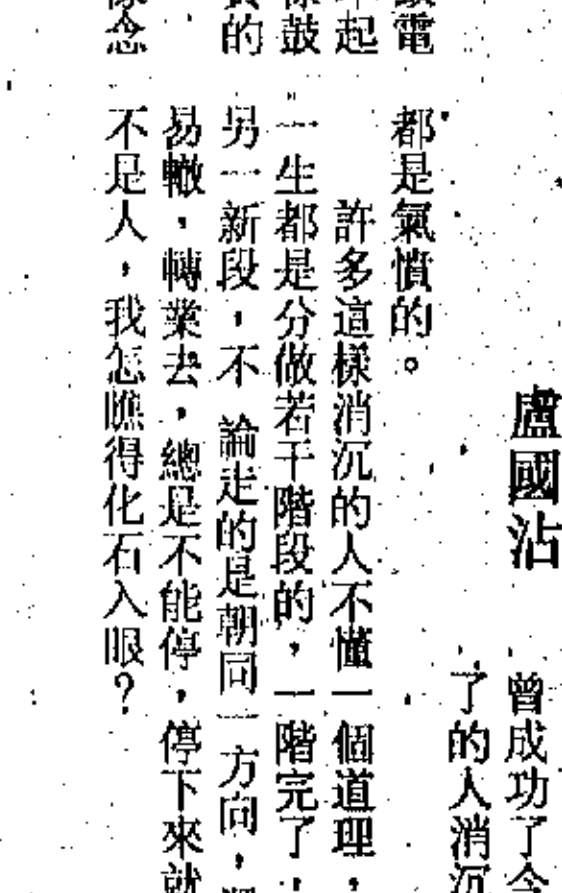 盧國沾
曾成功了今
了的人消沉
電
都是氣憤的。
起
許多這樣消沉的人不懂一個道理,
鼓
一生都是分做若干階段的,一階完了,
的
另一新段,不論走的是朝同一方向,
易轍,轉業去,總是不能停,停下來就
念
不是人,我怎瞧得化石入眼?